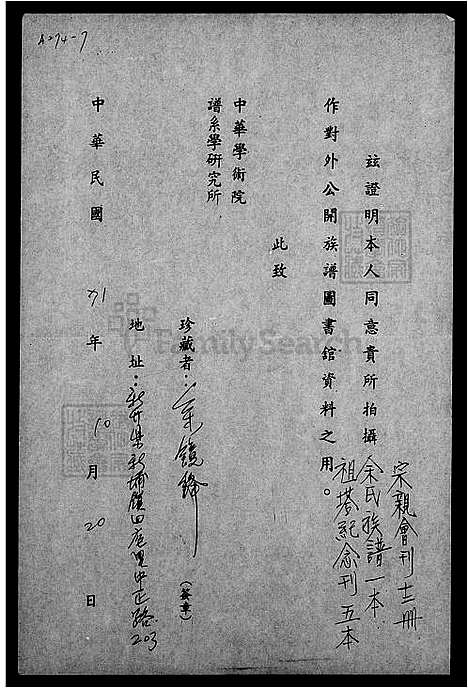 A274-7
茲證明本人同意貴所拍攝
宗親會刊十三冊
余氏族譜一本
祖塔紀念刊五本
作對外公開族譜圖書館資料之用。
此致
中華學術院
譜系學研究所
珍藏者：余鏡鋒
(簽章)
地址：新竹縣新埔鎮四座里中正路203
中華民國71年10月20日
FamilySearch